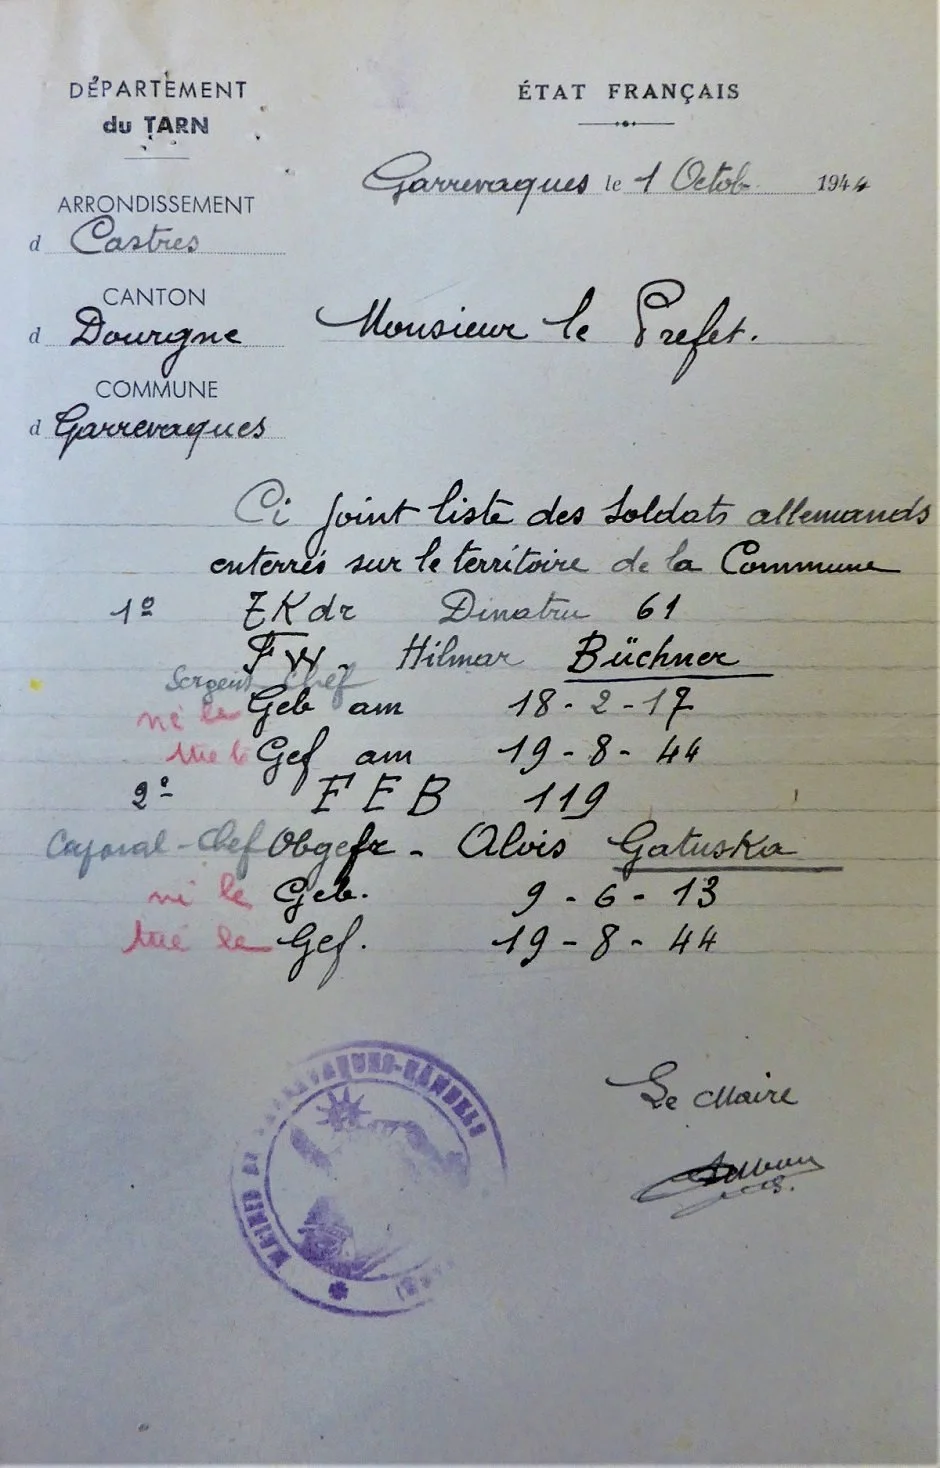 DÉPARTEMENT
du TARN
ÉTAT FRANÇAIS
Garrevaques le 1 Octob. 1944
ARRONDISSEMENT
d Castres
CANTON
d Dourgne
COMMUNE
d Garrevaques
Monsieur le Prefet.
Ci joint liste des soldats allemands
enterrés sur le territoire de la Commune
1º ZKdr Dinatru 61
FW. Hilmar Büchner
Sergent Chef
né le Geb am 18-2-17
tué le Gef am 19-8-44
2º- F E B 119
Caporal-Chef Obgefr - Alois Gatuska
né le Geb. 9-6-13
tué le Gef. 19-8-44
Le Maire
MAIRIE DE GARREVAQUES